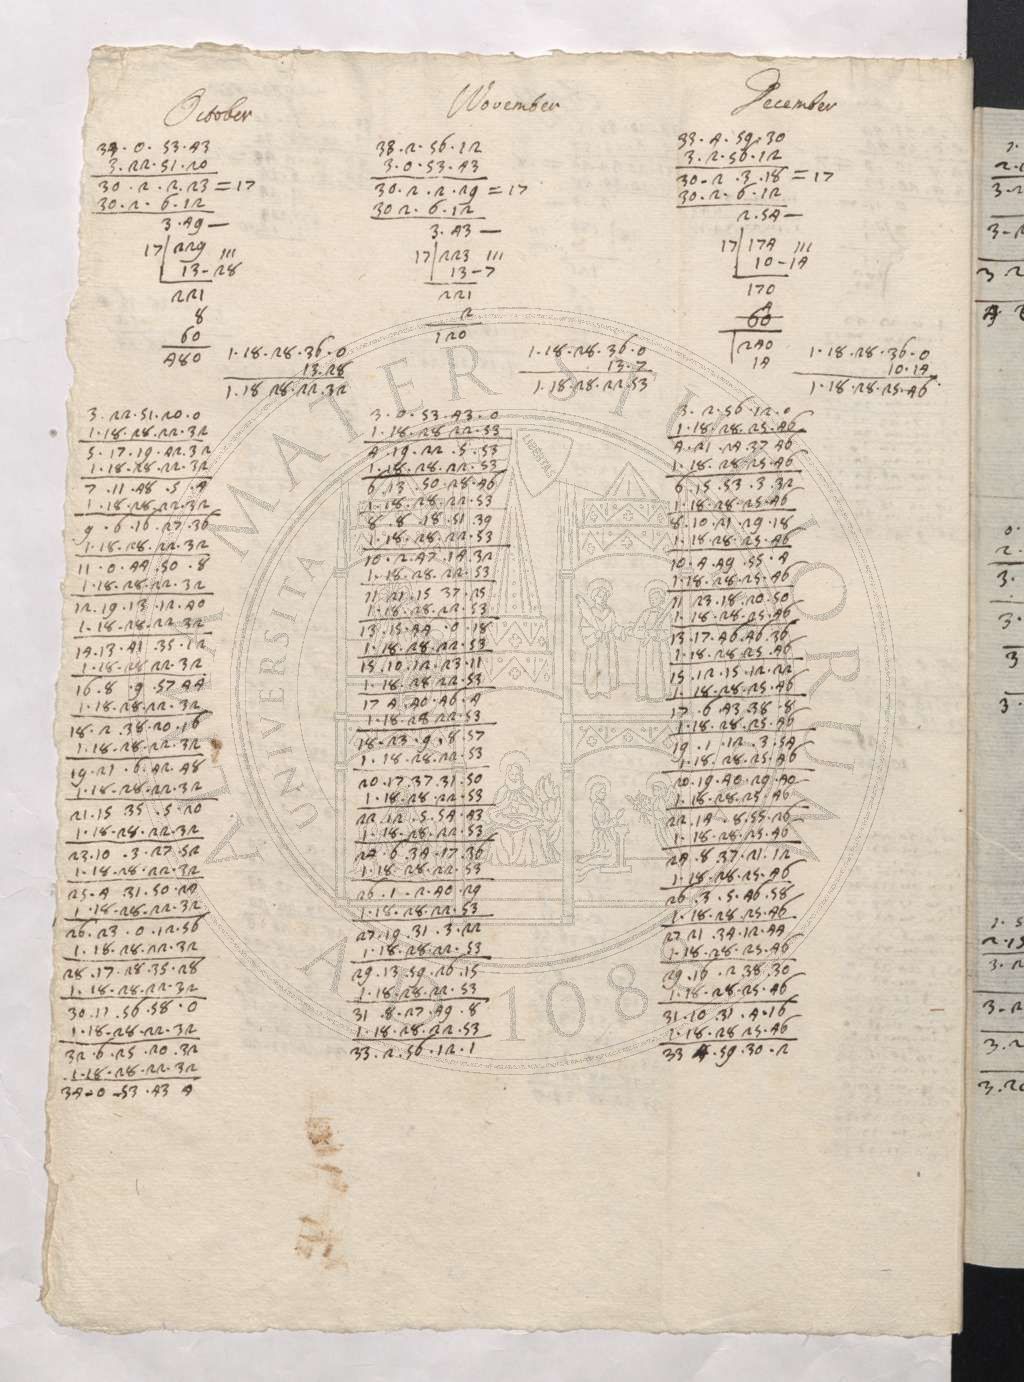 October
34.0.53.43
3.22.51.20
30.2.2.23=17
30.2.6.12
3.49—
17 229 '''
13-28
221
8
60
480
1.18.28.36.0
13.28
1.18.28.22.32
3.22.51.20.0
1.18.28.22.32
5.17.19.42.32
1.18.28.22.32
7.11.48.5.4
1.18.28.22.32
9.6.16.27.36
1.18.28.22.32
11.0.44.50.8
1.18.28.22.32
12.19.13.12.40
1.18.28.22.32
14.13.41.35.12
1.18.28.22.32
16.8.9.57.44
1.18.28.22.32
18.2.38.20.16
1.18.28.22.32
19.21.6.42.48
1.18.28.22.32
21.15 35.5.20
1.18.28.22.32
23.10.3.27.52
1.18.28.22.32
25.4.31.50.24
1.18.28.22.32
26.23.0.12.56
1.18.28.22.32
28.17.28.35.28
1.18.28.22.32
30.11.56.58.0
1.18.28.22.32
32.6.25.20.32
1.18.28.22.32
34.0.53.43 4
November
33.2.56.12
3.0.53.43
30.2.2.29=17
30 2.6.12
3.43—
17 223 '''
13-7
221
2
120
1.18.28.36.0
13.7
1.18.28.22.53
3.0.53.43.0
1.18.28.22.53
4.19.22.5.53
1.18.28.22.53
6.13.50.28.46
1.18.28.22.53
8.8.18.51.39
1.18.28.22.53
10.2.47.14.32
1.18.28.22.53
11 21.15 37.25
1.18.28.22.53
13.15.44.0.18
1.18.28.22.53
15.10.12.23.11
1.18.28.22.53
17 4.40.46.4
1.18.28.22.53
18.23.9.8.57
1.18.28.22.53
20.17.37.31.50
1.18.28.22.53
22.12.5.54.43
1.18.28.22.53
24.6.34.17.36
1.18.28.22.53
26.1.2.40.29
1.18.28.22.53
27.19.31.3.22
1.18.28.22.53
29.13.59.26.15
1.18.28.22.53
31.8.27.49.8
1.18.28.22.53
33.2.56.12.1
December
33.4.59.30
3.2.56.12
30.2.3.18=17
30.2.6.12
2.54—
17 174 '''
10-14
170
4
60
240
14
1.18.28.36.0
10.14
1.18.28.25.46
3.2.56.12.0
1.18.28.25.46
4.21.24.37.46
1.18.28.25.46
6.15.53.3.32
1.18.28.25.46
8.10.21.29.18
1.18.28.25.46
10.4.49.55.4
1.18.28.25.46
11 23.18.20.50
1.18.28.25.46
13.17.46.46.36
1.18.28.25.46
15.12.15.12.22
1.18.28.25.46
17.6.43.38.8
1.18.28.25.46
19.1.12.3.54
1.18.28.25.46
20.19.40.29.40
1.18.28.25.46
22.14.8.55.26
1.18.28.25.46
24.8.37.21.12
1.18.28.25.46
26.3.5.46.58
1.18.28.25.46
27 21.34.12.44
1.18.28.25.46
29.16.2.38.30
1.18.28.25.46
31.10.31.4.16
1.18.28.25.46
33 4.59.30.2
ALMA MATER STUDIORUM
UNIVERSITA
A.D. 1088
LIBERTAS